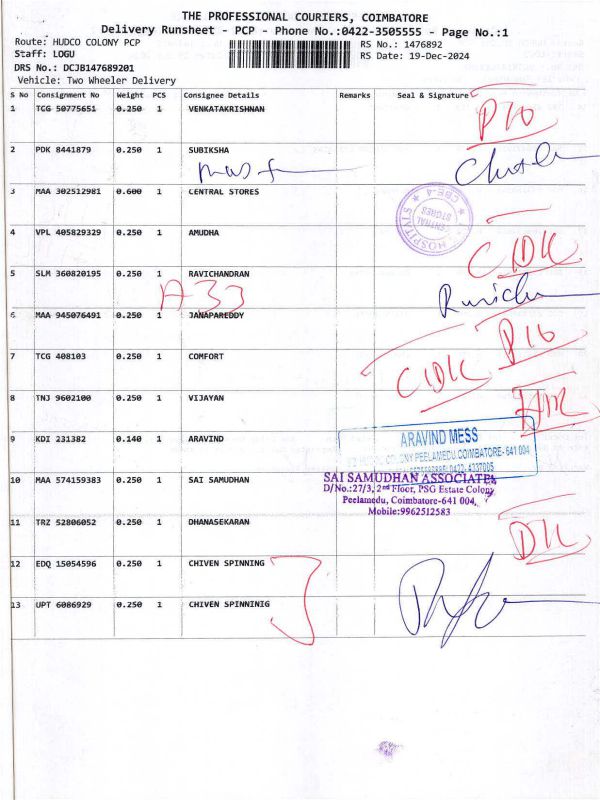 THE PROFESSIONAL COURIERS, COIMBATORE
Delivery Runsheet - PCP - Phone No.:0422-3505555 - Page No.:1
Route: HUDCO COLONY PCP RS No.: 1476892
Staff: LOGU RS Date: 19-Dec-2024
DRS No.: DCJB147689201
Vehicle: Two Wheeler Delivery
S No Consignment No Weight PCS Consignee Details Remarks Seal & Signature
1 TCG 50775651 0.250 1 VENKATAKRISHNAN
P10
2 PDK 8441879 0.250 1 SUBIKSHA
3 MAA 302512981 0.600 1 CENTRAL STORES
HOSPITAL CENTRAL STORES CBE-4
4 VPL 405829329 0.250 1 AMUDHA
CIDK
5 SLM 360820195 0.250 1 RAVICHANDRAN
A33
6 MAA 945076491 0.250 1 JANAPAREDDY
P10
7 TCG 408103 0.250 1 COMFORT
CIDK
8 TNJ 9602100 0.250 1 VIJAYAN
9 KDI 231382 0.140 1 ARAVIND
ARAVIND MESS
COLONY PEELAMEDU, COIMBATORE- 641 004
0422-4337005
10 MAA 574159383 0.250 1 SAI SAMUDHAN
SAI SAMUDHAN ASSOCIATES
D/No.:27/3, 2nd Floor, PSG Estate Colony
Peelamedu, Coimbatore-641 004,
Mobile:9962512583
11 TRZ 52806052 0.250 1 DHANASEKARAN
DK
12 EDQ 15054596 0.250 1 CHIVEN SPINNING
13 UPT 6086929 0.250 1 CHIVEN SPINNINIG